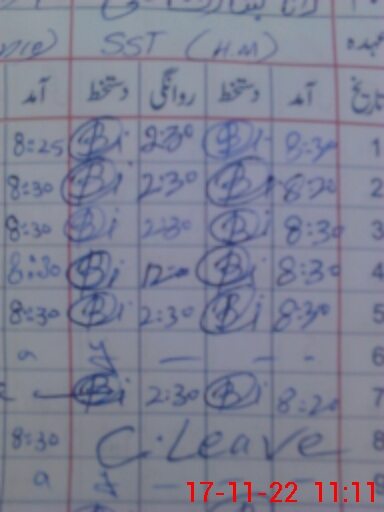 SST (H.M)
آمد دستخط روانگی دستخط آمد تاریخ
8:25 Bi 2:30 Bi 8:30 1
8:30 Bi 2:30 Bi 8:20 2
8:30 Bi 2:30 Bi 8:30 3
8:30 Bi 12:00 Bi 8:30 4
8:30 Bi 2:30 Bi 8:30 5
— — - 6
Bi 2:30 Bi 8:20 7
8:30 C.Leave 8
9
17-11-22 11:11